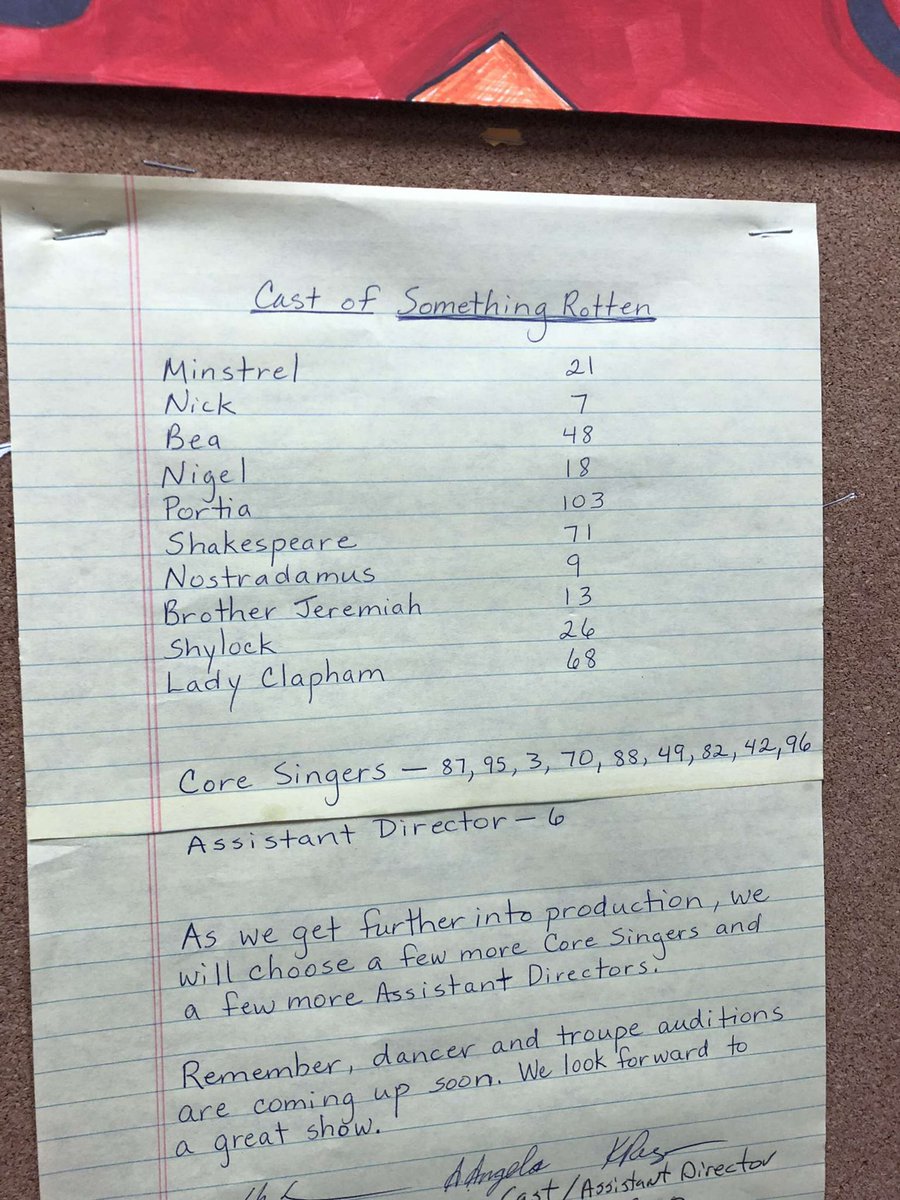 Cast of Something Rotten
Minstrel 21
Nick 7
Bea 48
Nigel 18
Portia 103
Shakespeare 71
Nostradamus 9
Brother Jeremiah 13
Shylock 26
Lady Clapham 68
Core Singers - 87, 95, 3, 70, 88, 49, 82, 42, 96
Assistant Director - 6
As we get further into production, we
will choose a few more Core Singers and
a few more Assistant Directors.
Remember, dancer and troupe auditions
are coming up soon. We look forward to
a great show.
AAngelo
Cast/Assistant Director